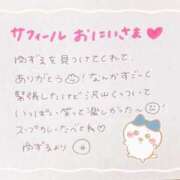 サフィール おにいさま
ゆずを見つけてくれて、
ありがとう なんかすごーく
緊張したけど沢山くっついて
いっぱい笑って楽しかった〜
スープカレーたべてね
ゆずより